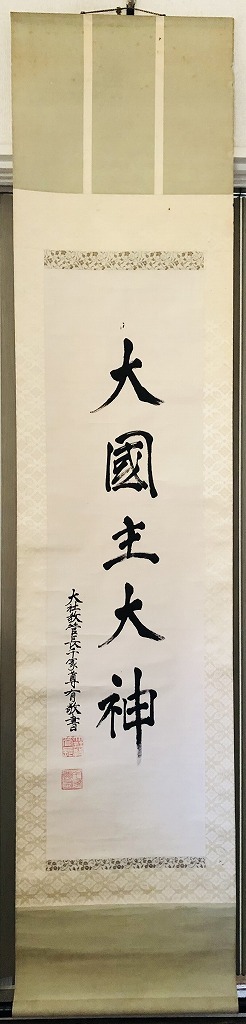 大國主大神
大社教管長千家尊有敬書